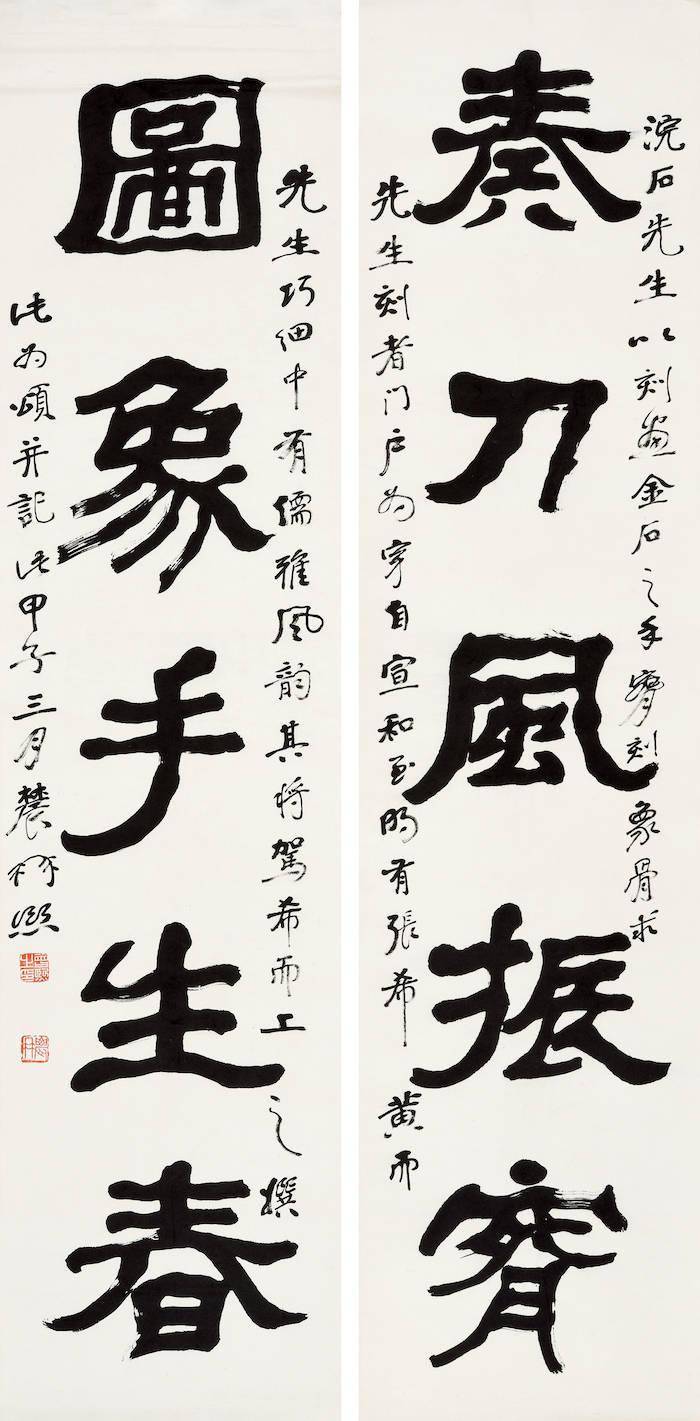 浣石先生以刻畫金石之手 刻象骨求
奏刀風振
先生刻者門戶為穿自宣和至明有張希黃而
先生巧細中有儒雅風韻其將駕希而上之撰
圖象手生春
此為頌并記時甲子三月農髯熙